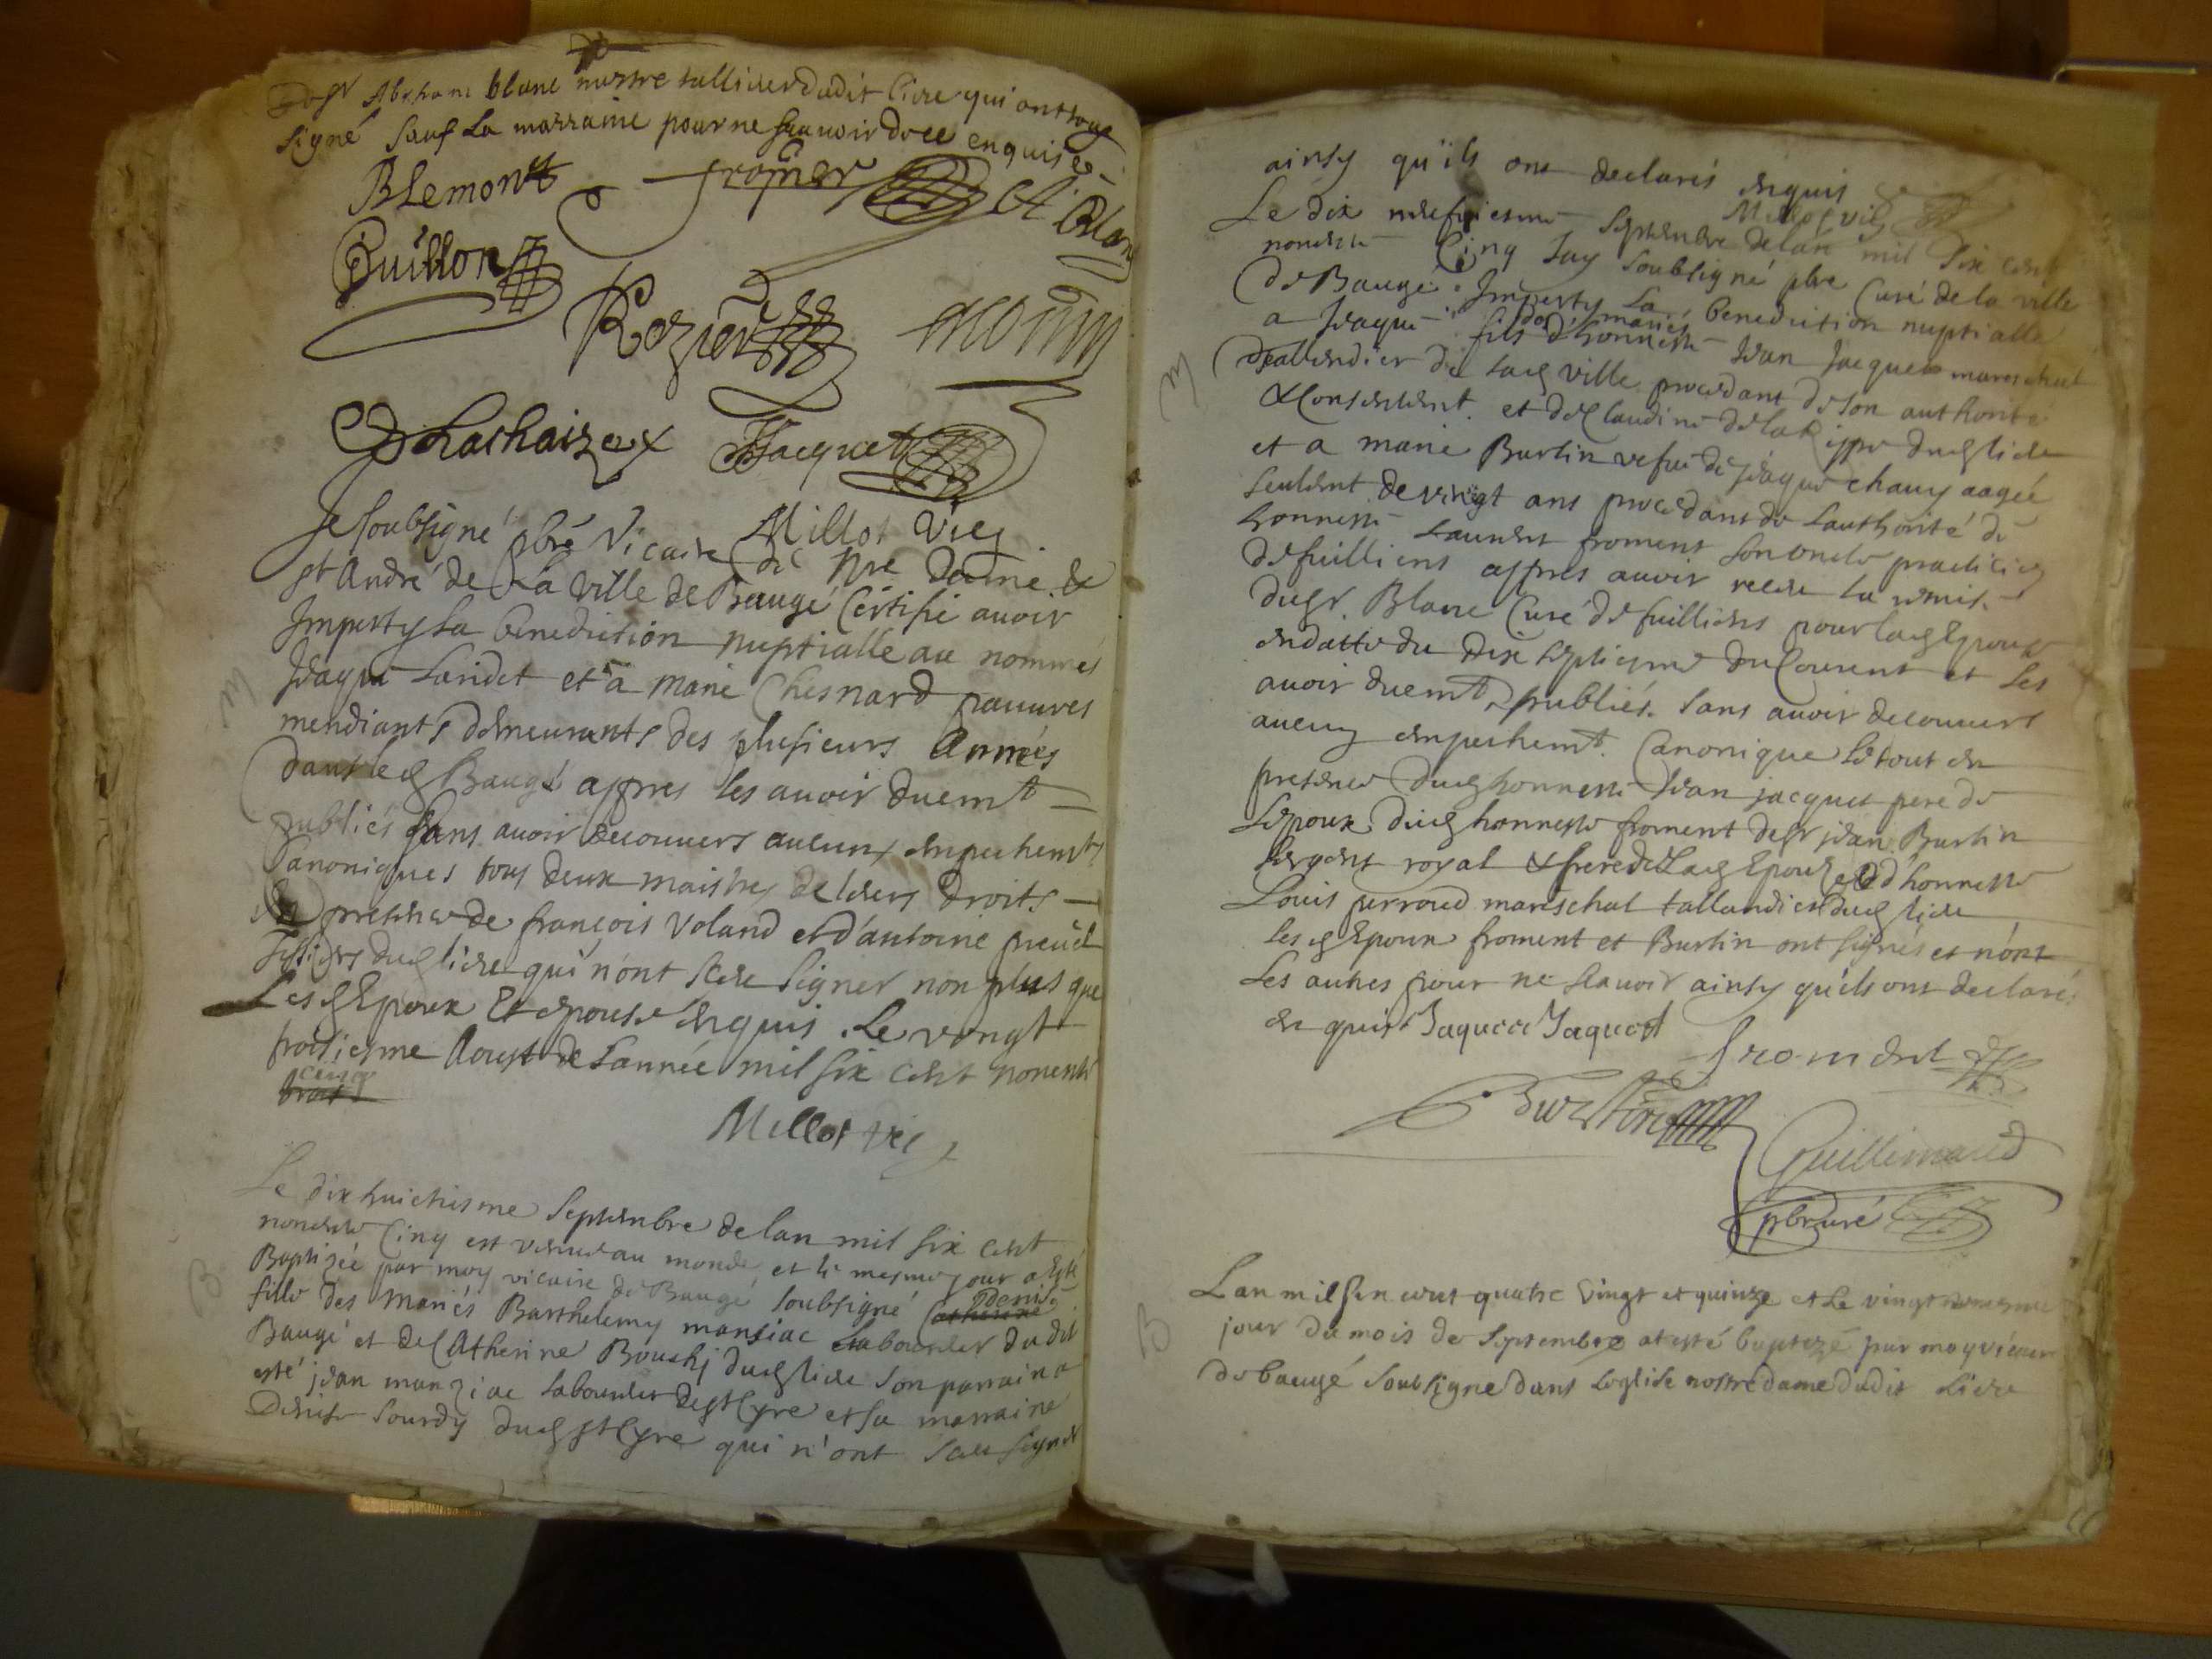 Abraham blanc nostre tallieur dudit lieu qui ont tous
signé sauf La marraine pour ne scauoir de ce enquise
BLemont fromier A. Blanc
Guillon
Rozier
DeLachaize Jacquet
Millot vic
Je soubsigné pbre Vicaire de Nre dame &
st André de La ville de Baugé Certifie auoir
Imperty La benediction nuptialle au nommés
Jeaque Laridet et a Marie Chesnard pauures
mendiants demeurants des plusieurs Années
dans led Baugé appres les auoir duemt
publiés sans auoir decouuers aucuns empechemts
Canoniques tous deux maistres de leurs droits
En presence de françois Voland et d'antoine
dud lieu qui n'ont sceu signer non plus que
Lesd Epoux Et epouse enquis. Le vingt
troisiesme Aoust de Lannée mil six cent nonente
cinq
trois
Millot vic
Le dix huictiesme Septembre de lan mil six cent
nonente Cinq est venue au monde et le mesme jour a Esté
Baptizée par moy vicaire de Baugé soubsigné Catherine Denise
fille des mariés Barthelemy manziac Laboureur du dit
Baugé et de CAtherine Bouchy dud lieu son parrain a
esté jean manziac laboureur de st Cyre et sa marraine
Denise Sourdy dud st Cyre qui n'ont sceu signer
ainsy qu'ils ont declarés enquis
Millot vic
Le dix neufuiesme Septembre de lan mil six cent
nonente Cinq Jay soubsigné pbre Curé de la ville
de Baugé Imperty La benediction nuptialle
a Jeaque fils des mariés d'honneste Jean Jacquet mareschal
de lad ville procedant de son authorité
& Consentement et de Claudine de la Rippe dud lieu
et a marie Burtin vefue de Jeaque chauy aagée
seulement de vingt ans procedant de lauthorité de
honneste Laurent froment son oncle practicien
de fuilliens appres auoir receu la remise
du sr Blanc Curé de fuilliens pour lad Epouse
en datte du dix septiesme du Courent et les
auoir duemt publiés sans auoir decouuert
aucun empechemt Canonique le tout en
presence dud honneste Jean jacquet pere de
Lepoux dud honneste froment de sr jean Burtin
sergent royal & frere de Lad Epouse et d'honneste
Louis perroud mareschal tallandier dud lieu
les d Epoux froment et Burtin ont signés et n'ont
Les autres pour ne scauoir ainsy qu'ils ont declarés
enquis Jaquece Jaquet
froment
Burtin
Guillimaud
pbr curé
Lan mil six cent quatre vingt et quinze et Le vingt
jour du mois de Septembre at esté baptizé par moy vicaire
de baugé soubsigne dans Leglise nostre dame dudit Lieu